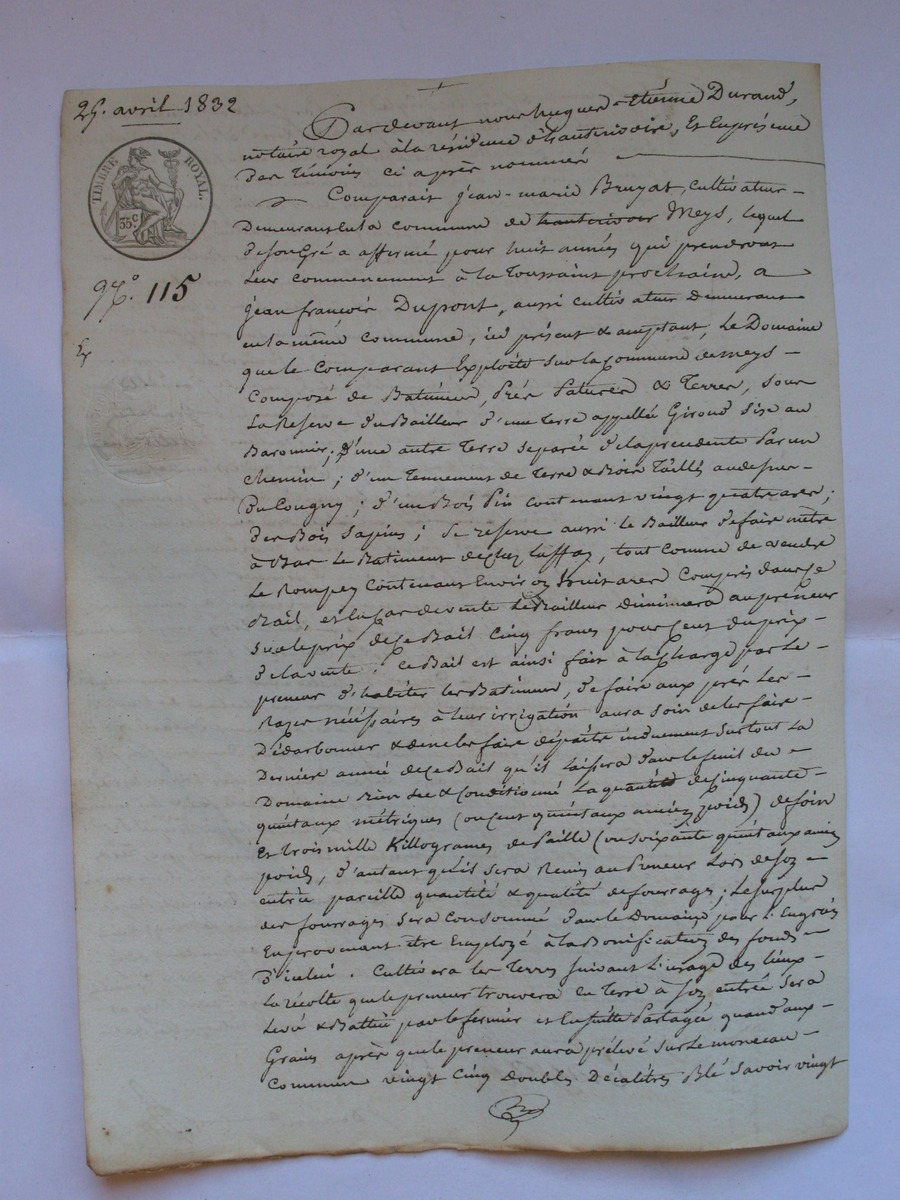 25. avril 1832
Pardevant nous hugues-étienne Durand,
notaire royal à la résidence d'hauterivoire, Et En présence
Des Témoins ci après nommés
TIMBRE ROYAL.
35 c
Comparait jean-marie Bruyat, cultivateur
Demeurant En la commune de hauterivoire Meys, lequel
De son Gré a affermé pour huit années qui prendront
Leur commencement à la Toussaint prochaine, a
N.º 115
jean françois Dupont, aussi cultivateur Demeurant
en la même commune, ici présent & acceptant, Le Domaine
Ex
que le Comparant Exploite sur la Commune de meys
Composé de Batimens, Prés Patures & Terres, sous
La Reserve du Bailleur d'une Terre appellée Giroud sise au
Baronnier; d'une autre Terre separée de la precedente Par un
chemin; d'un Tennement de Terre & Bois Taillis au dessus
Du Cougny; d'un Bois Pin contenant vingt quatre ares;
Des Bois Sapins; Se reserve aussi le Bailleur De faire mettre
à Bas Le Batiment de chez, tout comme de vendre
Le Rompey Contenant Environ huit ares Compris dans Ce
Bail, et En Cas de vente Le Bailleur diminuera au preneur
Sur le prix de Ce Bail Cinq francs pour Cent du prix
De la vente. Ce Bail est ainsi fait à la Charge par Le
preneur d'habiter les Batimens, De faire aux prés Les
Rases nécéssaires à leur irrigation aura soin de les faire
& de ne les faire dépaître induement surtout La
Dernière année de Ce Bail qu'il Laissera dans le fenil du
Domaine Bien Sec & Conditionné La quantité de Cinquante
quintaux métriques (ou Cent quintaux ancien poids) de foin
Et trois mille Killogrames de Paille (ou soixante quintaux ancien
poids, d'autant qu'il sera Remis au Preneur Lors de son
entrée pareille quantité & qualité de fourrages; Le surplus
des fourrages sera Consommé dans le Domaine pour L'Engrais
En provenant être Employé à la Bonification des fonds
D'icelui. Cultivera les Terres suivant L'usage des lieux
La récolte que le preneur trouvera en Terre à son entrée sera
Levé & Battue par le fermier et Ensuite Partagée quand aux
Grains après que le preneur aura prélevé sur Le monceau
Commun vingt Cinq doubles Décalitres Blé Savoir vingt